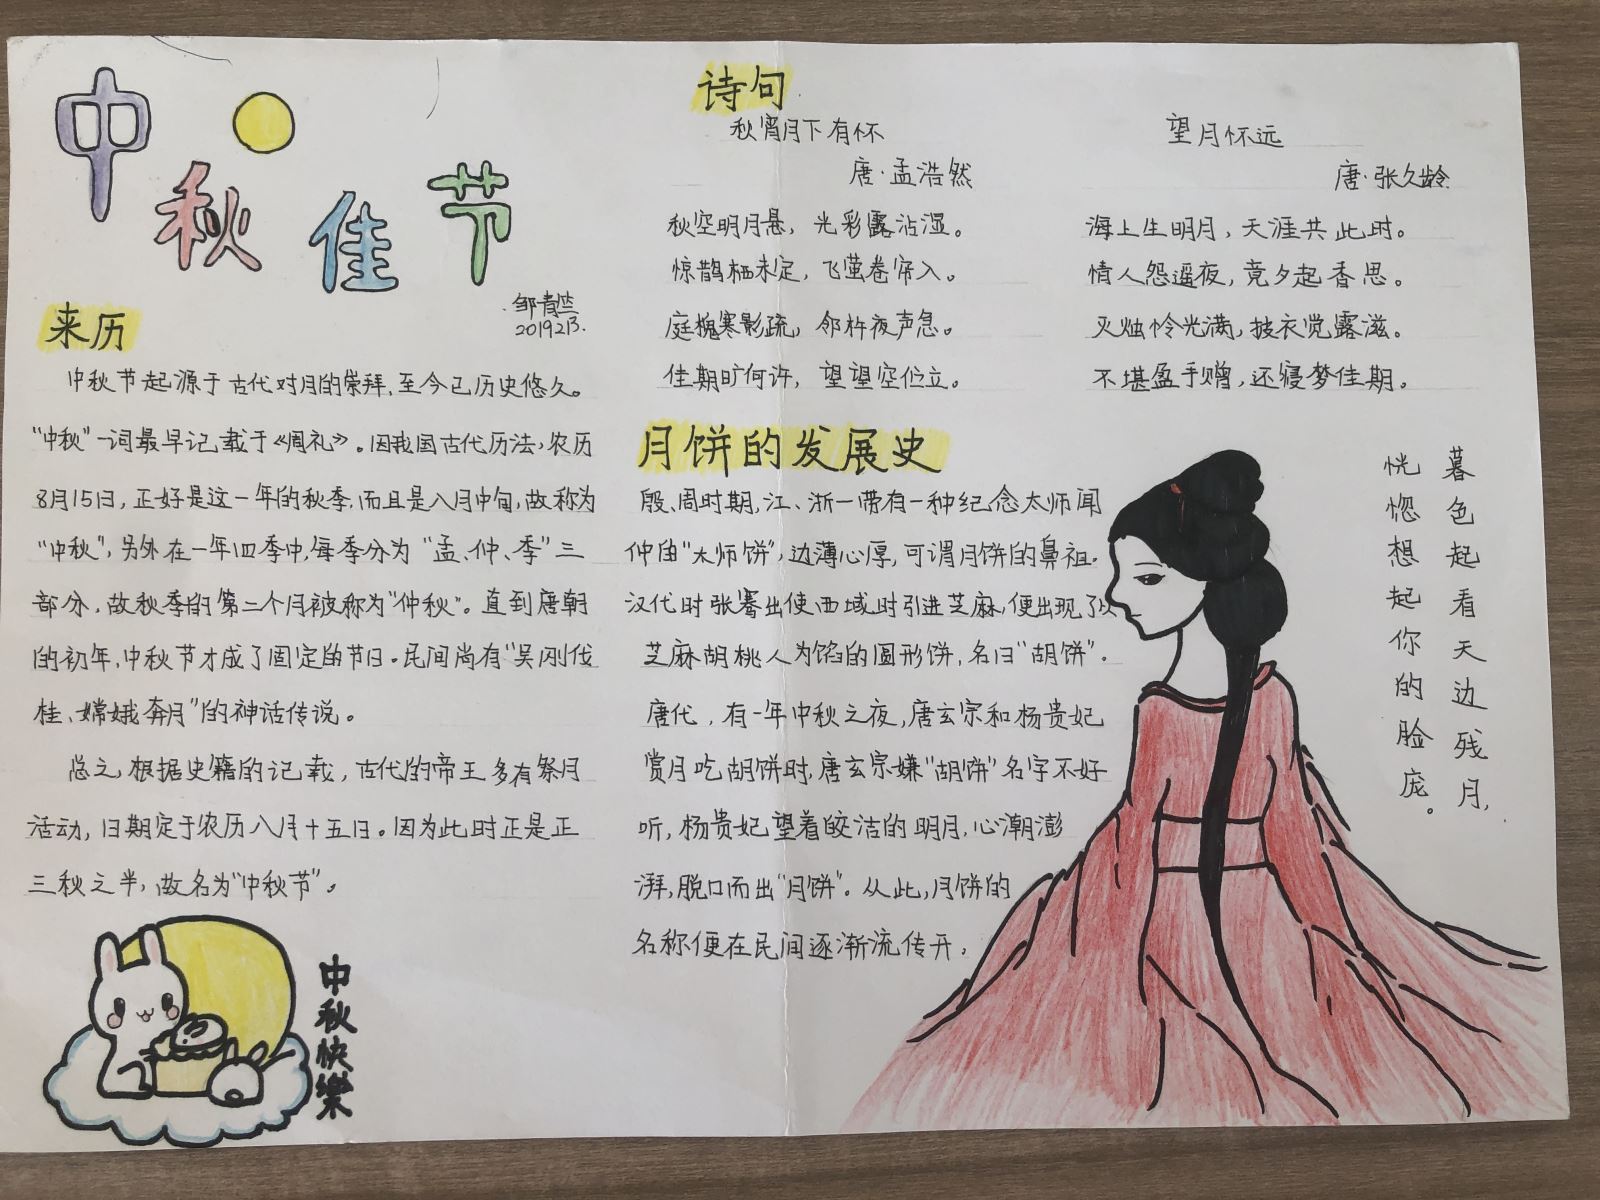 中秋佳节
邹青
2019213.
来历
中秋节起源于古代对月的崇拜,至今已历史悠久。
“中秋”一词最早记载于《周礼》。因我国古代历法,农历
8月15日,正好是这一年的秋季,而且是八月中旬,故称为
“中秋”,另外在一年四季中,每季分为“孟、仲、季”三
部分,故秋季的第二个月被称为“仲秋”。直到唐朝
的初年,中秋节才成了固定的节日。民间尚有“吴刚伐
桂、嫦娥奔月”的神话传说。
总之根据史籍的记载,古代的帝王多有祭月
活动,日期定于农历八月十五日。因为此时正是正
三秋之半,故名为“中秋节”。
中秋快樂
诗句
秋宵月下有怀
唐·孟浩然
秋空明月悬,光彩露沾湿。
惊鹊栖未定,飞萤卷帘入。
庭槐寒影疏,邻杵夜声急。
佳期旷何许,望望空伫立。
望月怀远
唐·张久龄
海上生明月,天涯共此时。
情人怨遥夜,竟夕起香思。
灭烛怜光满,披衣觉露滋。
不堪盈手赠,还寝梦佳期。
月饼的发展史
殷、周时期,江、浙一带有一种纪念太师闻
仲的“太师饼”,边薄心厚,可谓月饼的鼻祖.
汉代时张骞出使西域时引进芝麻,便出现了以
芝麻胡桃人为馅的圆形饼,名曰“胡饼”.
唐代,有一年中秋之夜,唐玄宗和杨贵妃
赏月吃胡饼时,唐玄宗嫌“胡饼”名字不好
听,杨贵妃望着皎洁的明月,心潮澎
湃,脱口而出“月饼”。从此,月饼的
名称便在民间逐渐流传开,
暮色起看天边残月,
恍惚想起你的脸庞。